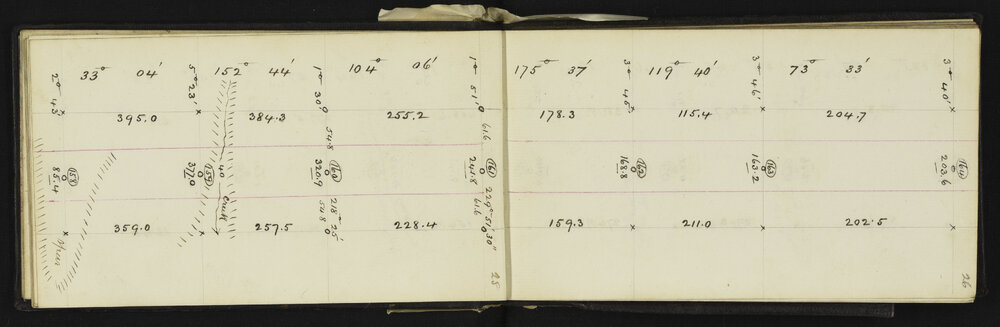 33° 04′ 152° 44′ 104° 06′
2° 43′
5° 23′
1° 30′
1° 51′
395.0 384.3 255.2
54.8
61.6
158 85.4
159 377.0
40
Creek
160 320.9
161 241.8
218° 25′
54.8
229° 51′ 30″
61.6
359.0 257.5 228.4
Spur
25
175° 37′ 119° 40′ 73° 33′
3° 45′
3° 46′
3° 40′
178.3 115.4 204.7
162 168.8
163 163.2
164 203.6
159.3 211.0 202.5
26